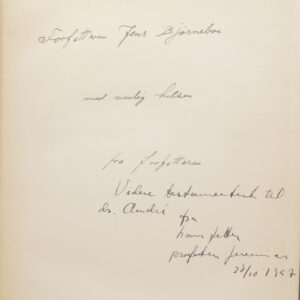 Forfatteren Jens Bjørneboe
med venlig hilsen
fra forfatteren
Videre testamentert til
dr. André fra
hans fetter
profeten Jeremias
26/10 1957